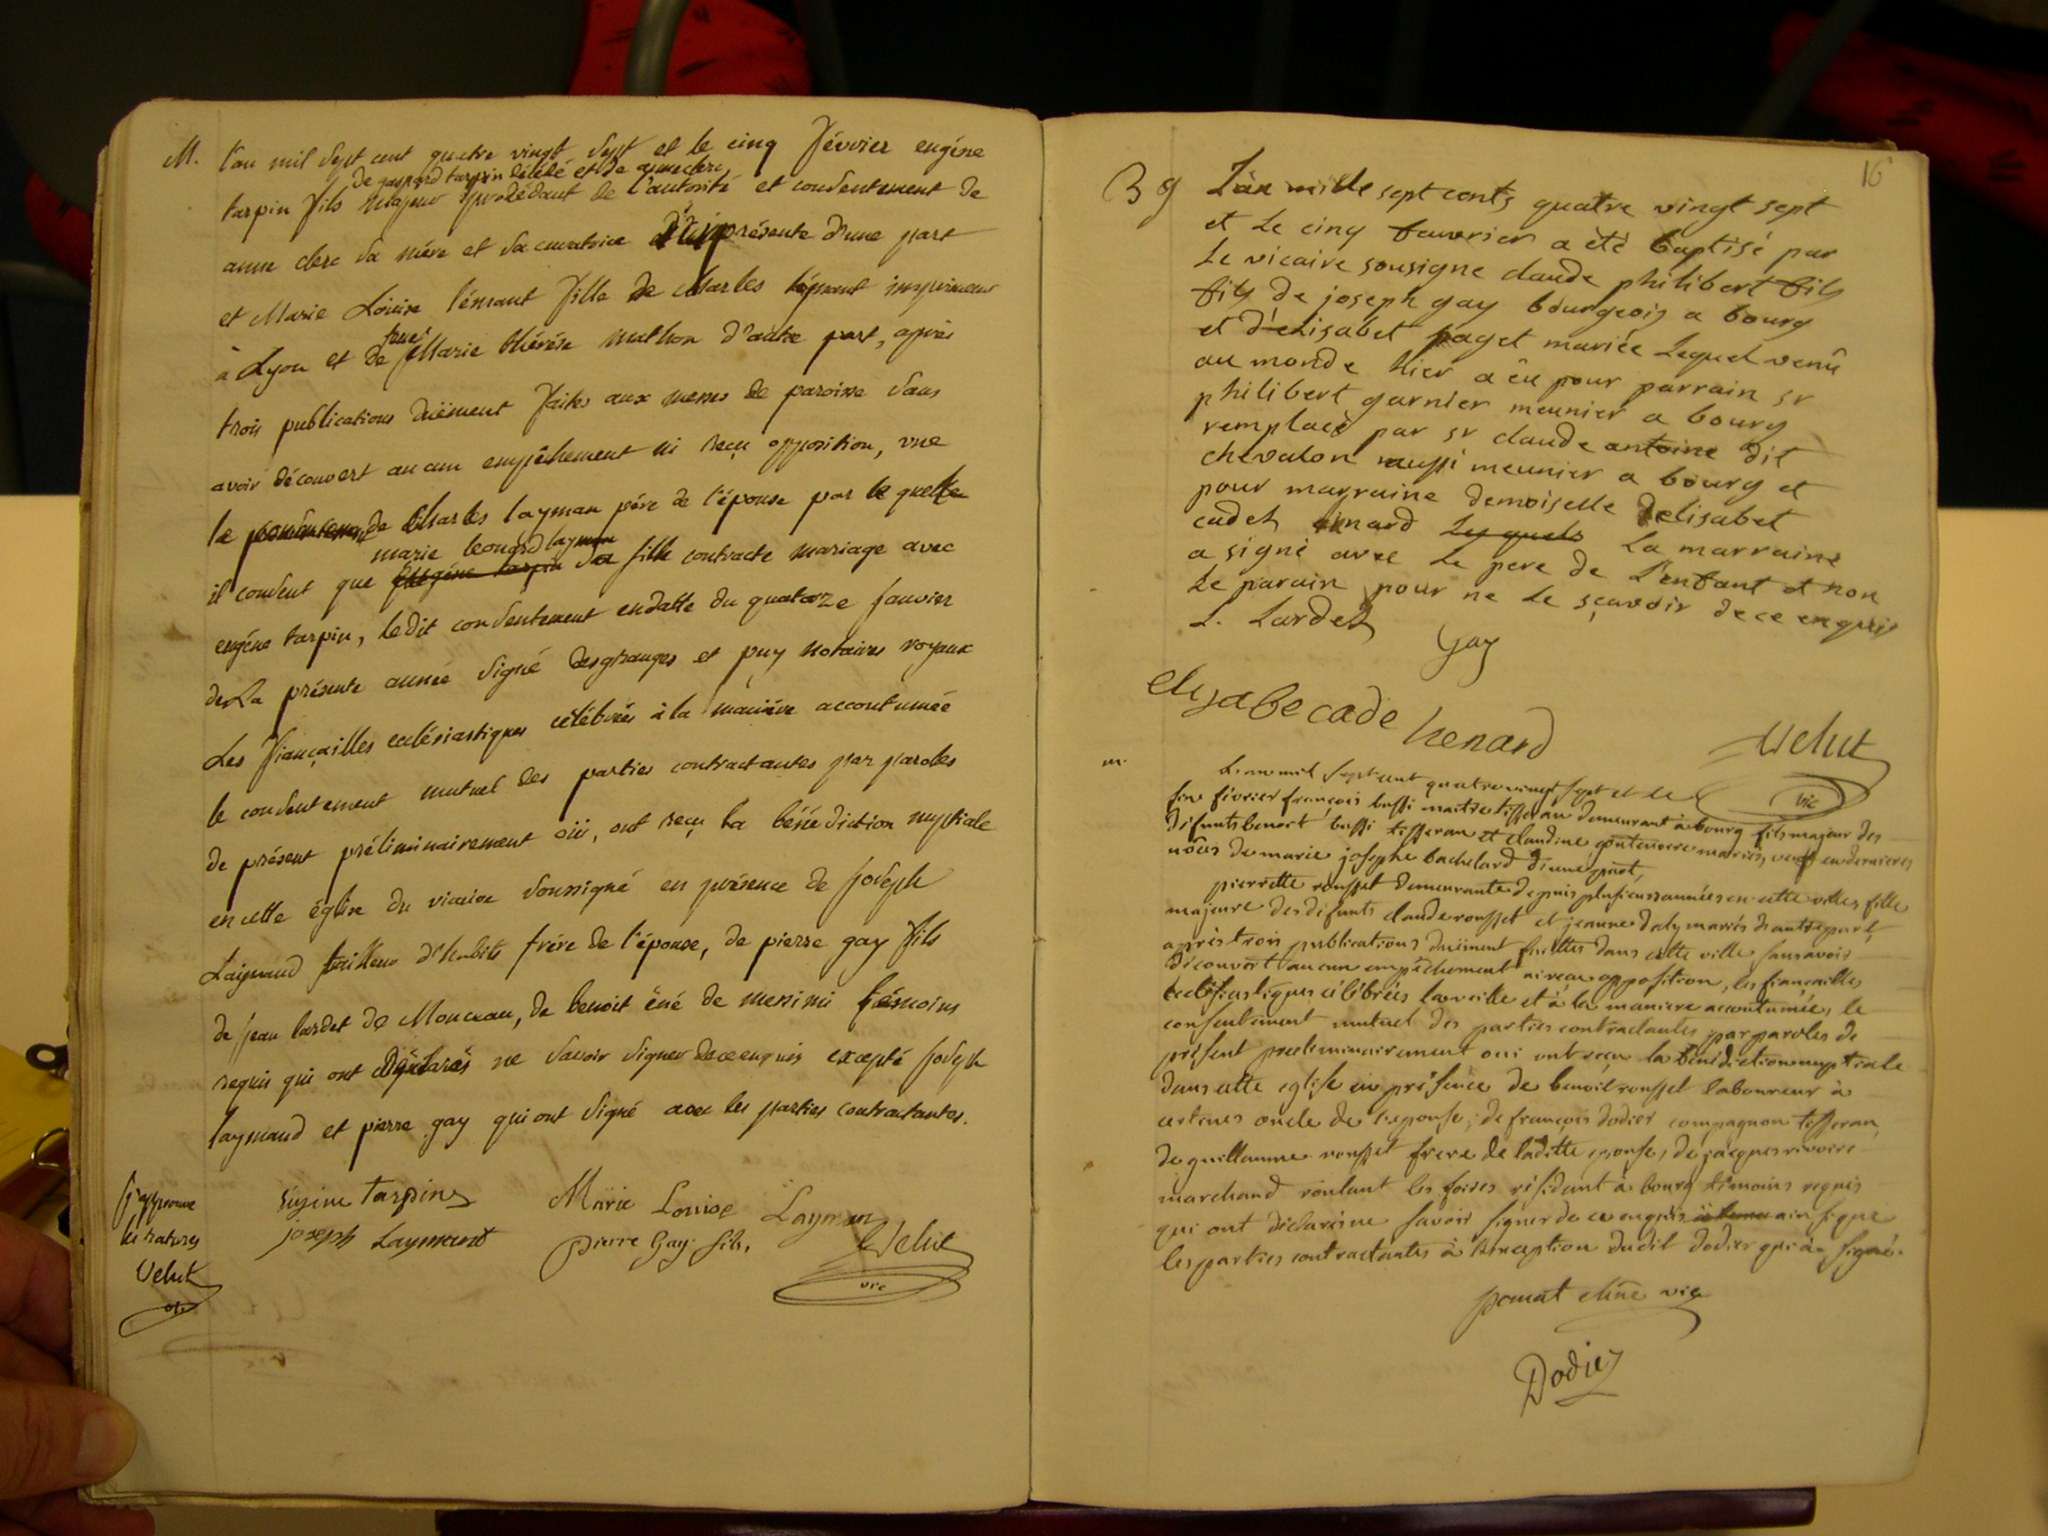 M. l'an mil sept cent quatre vingt sept et le cinq février eugéne
de gaspard tarpin décédé et de anne clerc
tarpin fils majeur procédant de l'autorité et consentement de
anne clerc sa mére et sa curatrice présente d'une part
et Marie Louise lémant fille de charles lémant imprimeur
à Lyon et de feüe Marie thérése mathon d'autre part, aprés
trois publications duëment faites aux messes de paroisse sans
avoir découvert aucun empêchement ni reçu opposition, vue
le de Charles layman pére de l'épouse par le quelle
marie leonard layman
il consent que eugéne tarpin sa fille contracte mariage avec
eugéne tarpin, ledit consentement endatte du quatorze janvier
de La présente année signé desgranges et puy notaires royaux
Les fiançailles ecclésiastiques célébrées à la maniére accoutumée
le consentement mutuel des parties contractantes par paroles
de présent préliminairement oüi, ont reçu la bénédiction nuptiale
en cette église du vicaire soussigné en présence de joseph
Laymand tailleur d'habits frére de l'épouse, de pierre gay fils
de jean lardet de Monceau, de benoit éné de mesimi témoins
requis qui ont déclarés ne savoir signer de ce enquis excepté joseph
laymand et pierre gay qui ont signé avec les parties contractantes.
j'approuve
les ratures
Velut
vic
Eugine tarpin Marie Louise Layman
joseph Laymant pierre Gay fils, Velut
vic
16
B g L'an mille sept cents quatre vingt sept
et le cinq feuvrier a été baptisé par
le vicaire sousigne claude philibert fils
fils de joseph gay bourgeois a bourg
et d'elisabet paget mariée lequel venû
au monde hier a eu pour parrain sr
philibert garnier meunier a bourg
remplacé par sr claude antoine dit
chevalon aussi meunier a bourg et
pour marraine demoiselle delisabet
cadet enard lesquels la marraine
a signé avec le pere de l'enfant et non
le parain pour ne le sçavoir de ce enquis
L. Lardet Gay
elisabe cade henard
Velut
vic
m. L'an mil sept cent quatre vingt sept et le
six février françois bussi maitre tisseran demeurant à bourg fils majeur des
défunts benoit bussi tisseran et claudine mariés, veuf en dernieres
nôces de marie josephe bachelard d'une part,
pierrette rousset demeurante depuis plusieurs années en cette ville, fille
majeure des défunts claude rousset et jeanne daly mariés d'autre part,
après trois publications duëment faittes dans cette ville sans avoir
découvert aucun empêchement ni reçu opposition, les fiançailles
ecclésiastiques célébrées la veille et à la maniere accoutumée, le
consentement mutuel des parties contractantes par paroles de
présent préeliminairement oui ont reçu la bénédiction nuptiale
dans cette eglise en présence de benoit rousset laboureur à
certines oncle de l'epouse, de françois dodier compagnon tisseran,
de guillaume rousset frere de laditte epouse, de jacques rivoire
marchand roulant les foires résidant à bourg témoins requis
qui ont déclarés ne savoir signer de ce enquis ainsi que
les parties contractantes à l'exception dudit dodier qui a signé.
vic
Dodier